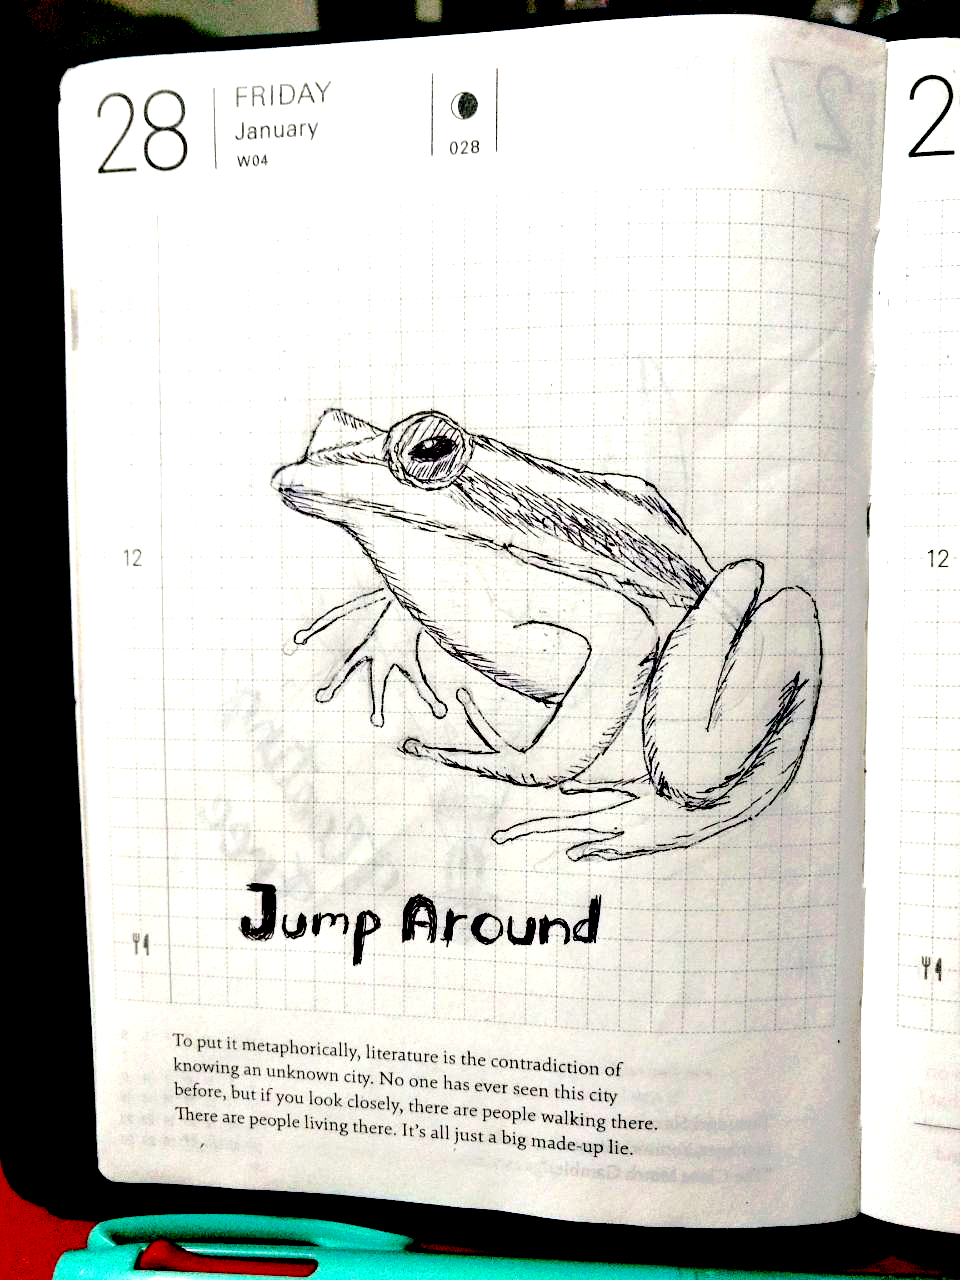 28
FRIDAY
January
W04
028
27
2
12
12
Jump Around
To put it metaphorically, literature is the contradiction of
knowing an unknown city. No one has ever seen this city
before, but if you look closely, there are people walking there.
There are people living there. It's all just a big made-up lie.